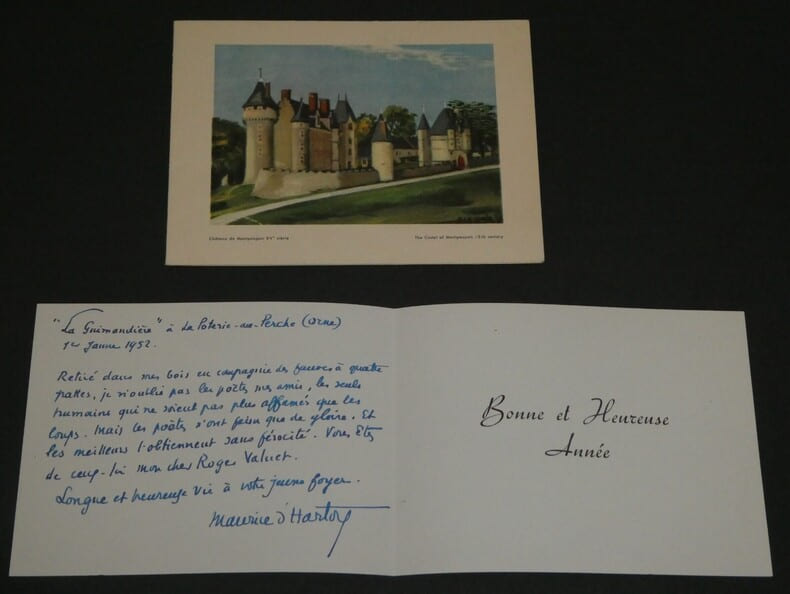 Château de Montpoupon XVe siècle
The Castel of Montpoupon 15th century
"La Guimandière" à La Poterie-au-Perche (Orne)
1er Janv. 1952.
Retiré dans mes bois en compagnie des fauves à quatre
pattes, je n'oublie pas les poètes mes amis, les seuls
humains qui ne soient pas plus affamés que les
loups. Mais les poètes n'ont faim que de gloire. Et
les meilleurs l'obtiennent sans férocité. Vous êtes
de ceux-là mon cher Roger Valuet.
Longue et heureuse vie à votre jeune foyer.
Maurice d'Hartoy
Bonne et Heureuse
Année